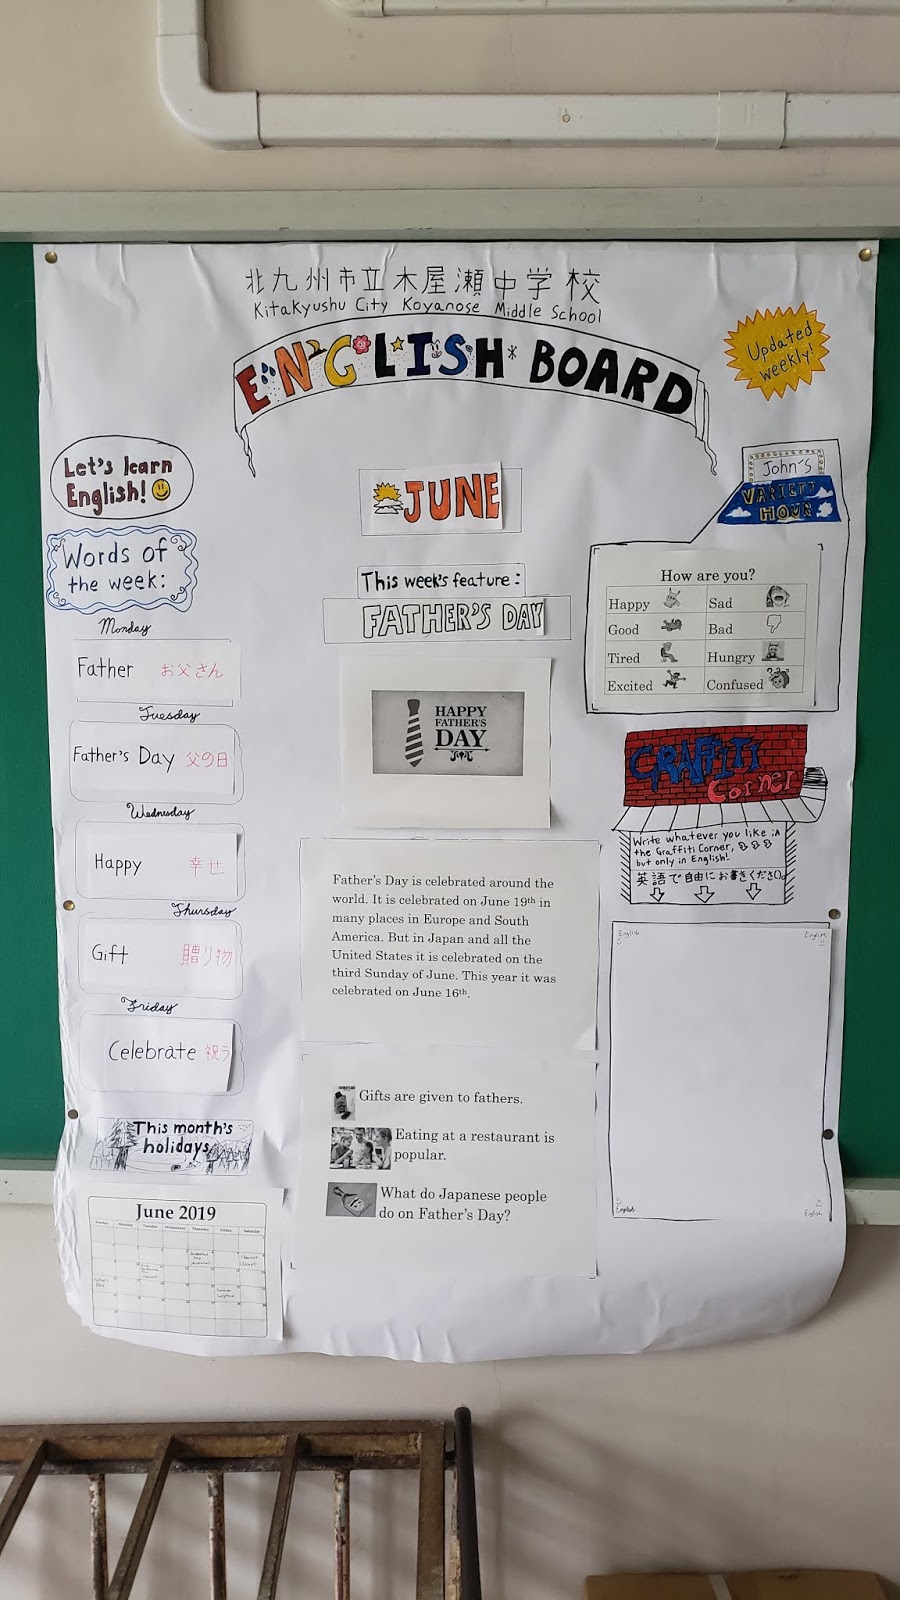 北九州市立木屋瀬中学校
Kitakyushu City Koyanose Middle School
ENGLISH BOARD
Updated
weekly!
Let's learn
English!
Words of
the week:
Monday
Father お父さん
Tuesday
Father's Day 父の日
Wednesday
Happy 幸せ
Thursday
Gift 贈り物
Friday
Celebrate 祝う
This month's
holidays
June 2019
Sunday Monday Tuesday Wednesday Thursday Friday Saturday
Father's
Day
Summer
Solstice
JUNE
This week's feature:
FATHER'S DAY
HAPPY
FATHER'S
DAY
Father's Day is celebrated around the
world. It is celebrated on June 19th in
many places in Europe and South
America. But in Japan and all the
United States it is celebrated on the
third Sunday of June. This year it was
celebrated on June 16th.
Gifts are given to fathers.
Eating at a restaurant is
popular.
What do Japanese people
do on Father's Day?
John's
VARIETY
HOUR
How are you?
Happy Sad
Good Bad
Tired Hungry
Excited Confused
GRAFFITI
Corner
Write whatever you like in
the Graffiti Corner,
but only in English!
英語で自由にお書きください。
English English
English English